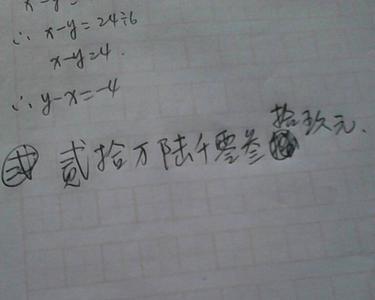 x-y=
∴ x-y=24÷6
x-y=4.
∴ y-x=-4
贰拾万陆千零叁拾玖元.